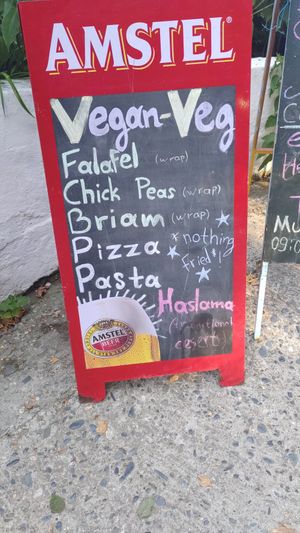 AMSTEL®
Vegan-Veg
Falafel (wrap)
Chick Peas (wrap)
Briam (wrap)
Pizza *nothing
Fried*!
Pasta
Haslama
(traditional
desert)
AMSTEL
BEER
MU
09:0